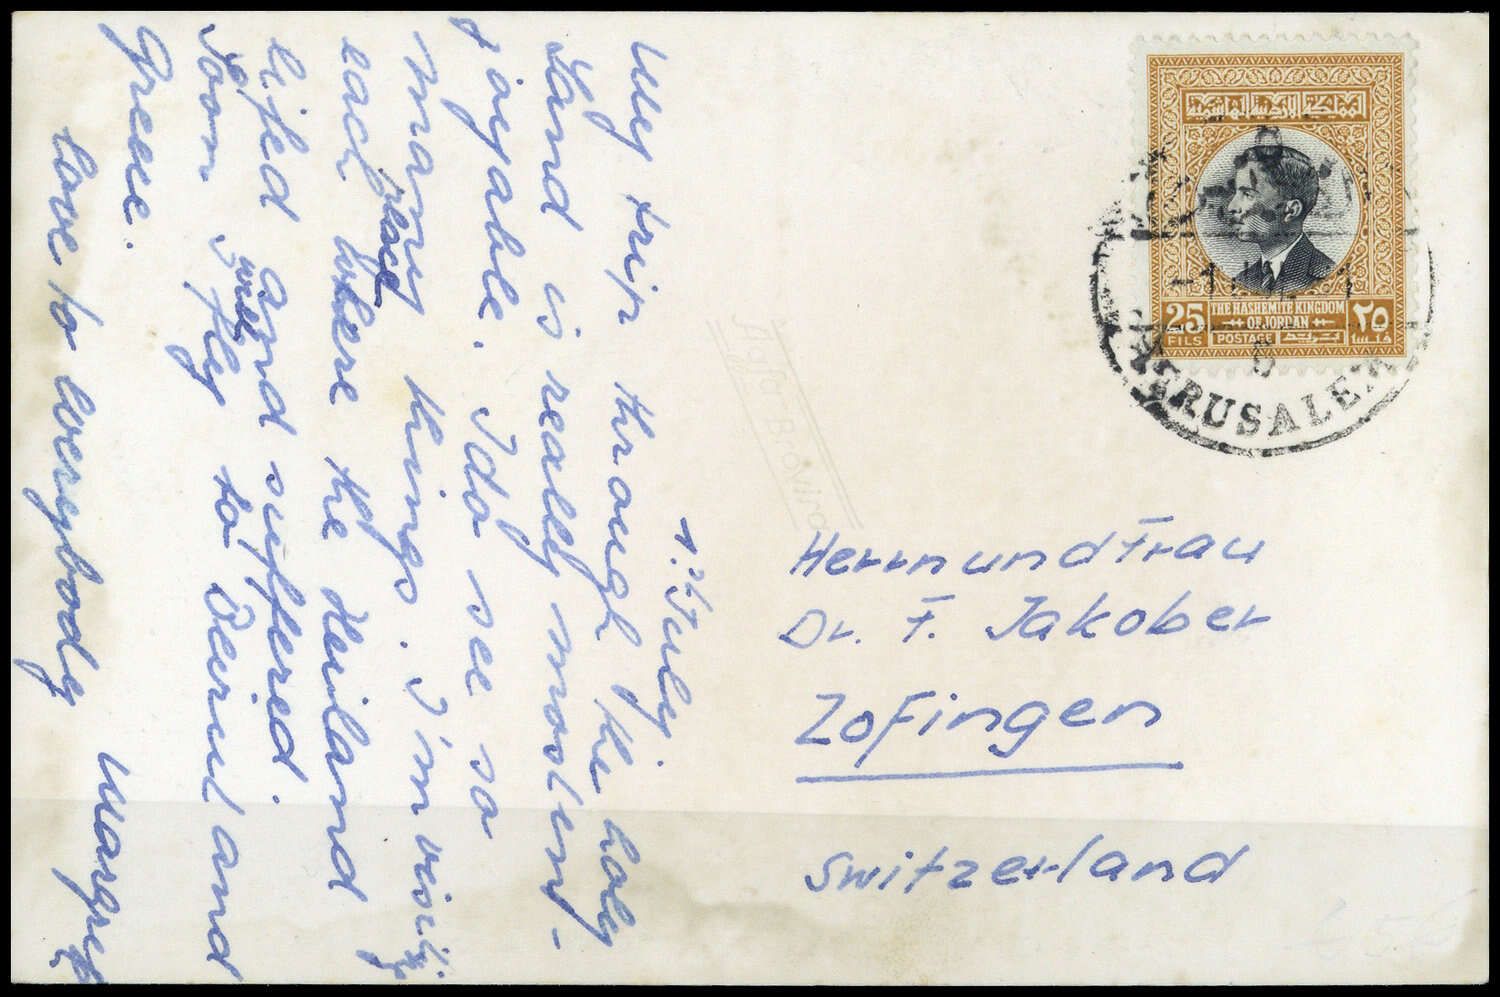 1. July.
My trip through the holy
Land is really most en-
joyable. I do see so
many things. I'm visiting
each place where the Heiland
lifed and suffered.
Soon I will fly to Beirut and
Greece.
Love to everybody
Margrit
المملكة الأردنية الهاشمية
25 FILS
THE HASHEMITE KINGDOM
OF JORDAN
POSTAGE
٢٥ فلسا
JERUSALEM
Agfa Brovira
Herrn und Frau
Dr. F. Jakober
Zofingen
Switzerland